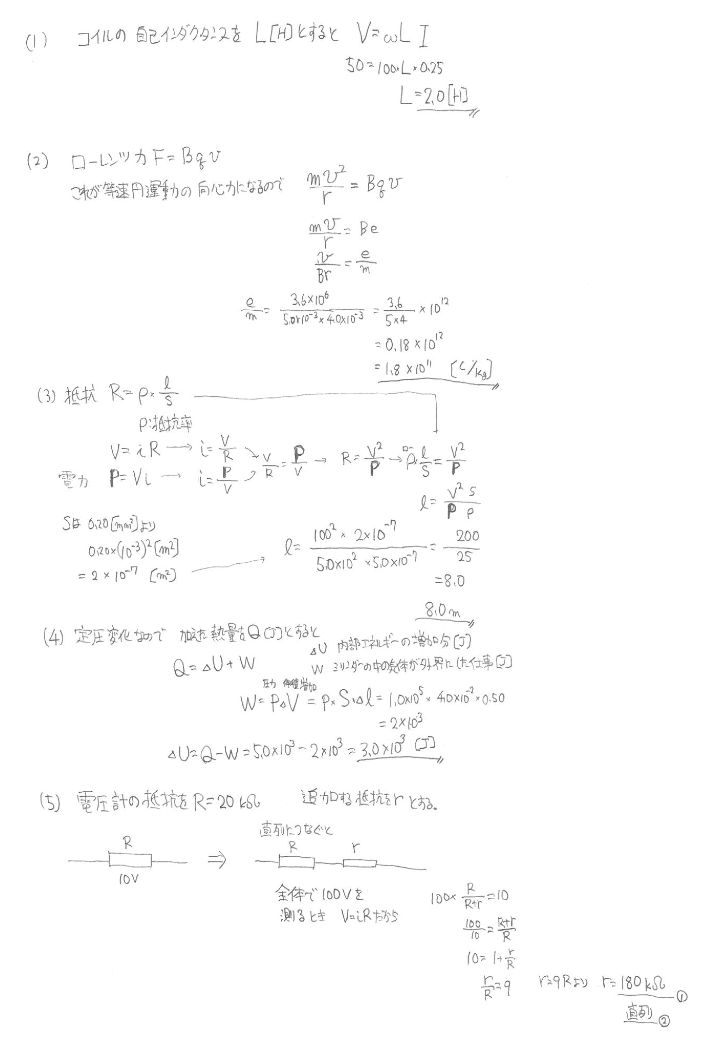 (1) コイルの 自己インダクタンスを L[H]とすると V=ωLI
50=100×L×0.25
L=2.0[H]
(2) ローレンツ力 F=Bqv
これが等速円運動の向心力になるので mv²/r = Bqv
mv/r = Be
v/Br = e/m
e/m = 3.6×10⁶/(5.0×10⁻³×4.0×10⁻³) = 3.6/(5×4) ×10¹²
=0.18×10¹²
=1.8×10¹¹ [C/kg]
(3) 抵抗 R=ρ×l/S
ρ:抵抗率
V=iR → i=V/R
電力 P=Vi → i=P/V
V/R=P/V → R=V²/P → ρ l/S=V²/P
l= V² S/P ρ
Sは 0.20[mm²]より
0.20×(10⁻³)²[m²]
=2×10⁻⁷ [m²]
l= 100²×2×10⁻⁷/(5.0×10²×5.0×10⁻⁷) = 200/25
=8.0
8.0m
(4) 定圧変化なので 加えた熱量をQ[J]とすると
Q=ΔU+W
ΔU 内部エネルギーの増加分[J]
W シリンダーの中の気体が外界にした仕事[J]
圧力 体積増加
W=PΔV=P×S×Δl=1.0×10⁵×4.0×10⁻²×0.50
=2×10³
ΔU=Q-W=5.0×10³-2×10³=3.0×10³ [J]
(5) 電圧計の抵抗をR=20kΩ 追加する抵抗をrとする。
直列につなぐと
R ⇒ R r
10V
全体で100Vを
測るとき V=iRだから
100× R/(R+r)=10
100/10=(R+r)/R
10=1+r/R
r/R=9 r=9Rより r=180kΩ ①
直列 ②